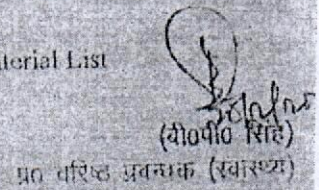 terial List
(वी०पी० सिंह)
प्र० वरिष्ठ प्रबन्धक (स्वास्थ्य)